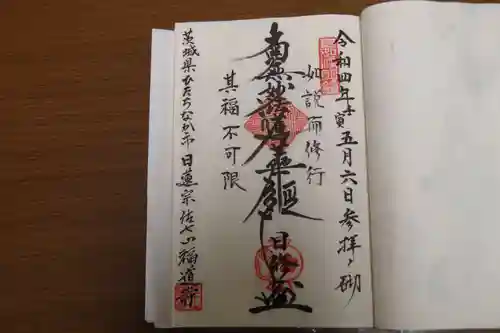 令和四年壬寅五月六日参拝之砌
如説而修行
南無妙法蓮華経
日修
其福不可限
茨城県ひたちなか市 日蓮宗 佐七山 福道寺